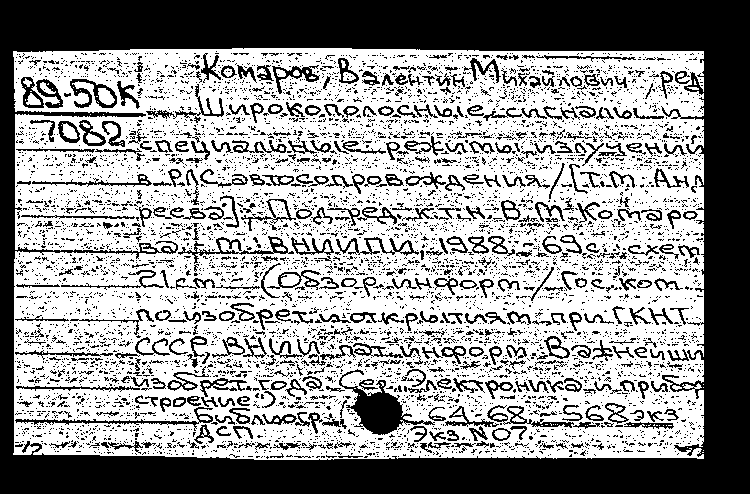 Комаров, Валентин Михайлович, ред
89-50К
7082
Широкополосные сигналы и
специальные режимы излучений
в РЛС автосопровождения / [Т.М. Анд
реева]; Под ред. к.т.н. В.М. Комаро
ва. - М.: ВНИИПИ, 1988. - 69с. схем
21см - (Обзор. информ. / Гос. ком.
по изобрет. и открытиям при ГКНТ
СССР, ВНИИ пат. информ. Важнейши
изобрет. года. Сер. Электроника и прибор
строение").
Библиогр.: с. 64-68. - 568 экз
ДСП. Экз. N 07.